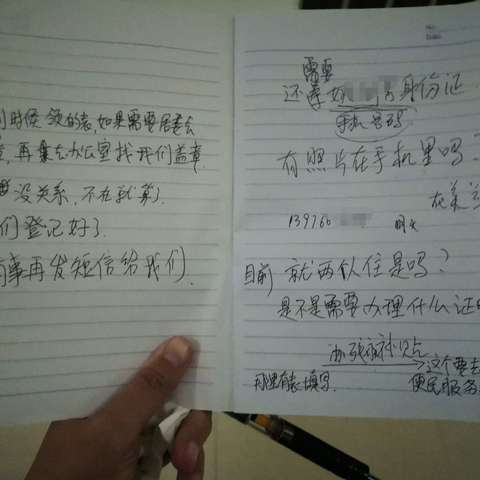 到时候领的表,如果需要居委会
再拿去办公室找我们盖章.
没关系,不在就算了.
们登记好了.
事再发短信给我们.
No:
Date:
需要
还拿 身份证
手机号码
有照片在手机里吗?
在
139760
明天
目前 就两个人住是吗?
是不是需要办理什么证
补贴
这个要去
那里有表填写.
便民服务